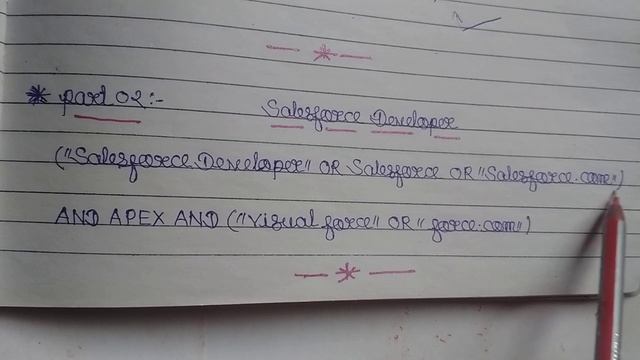 * Part 02:-
Salesforce Developer
("Salesforce Developer" OR Salesforce OR "Salesforce.com")
AND APEX AND ("Visual force" OR "force.com")